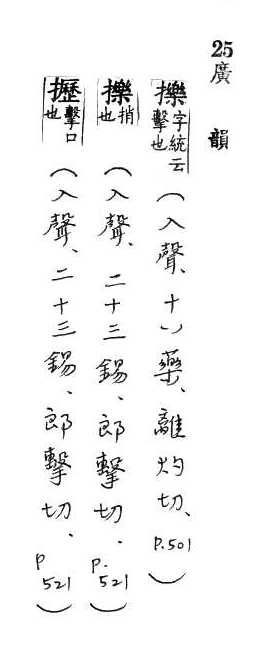 25 廣韻
擽 字統云擊也 (入聲、十八藥、離灼切、P.501)
擽 捎也 (入聲、二十三錫、郎擊切.P.521)
攊 擊口也 (入聲、二十三錫、郎擊切.P 521)